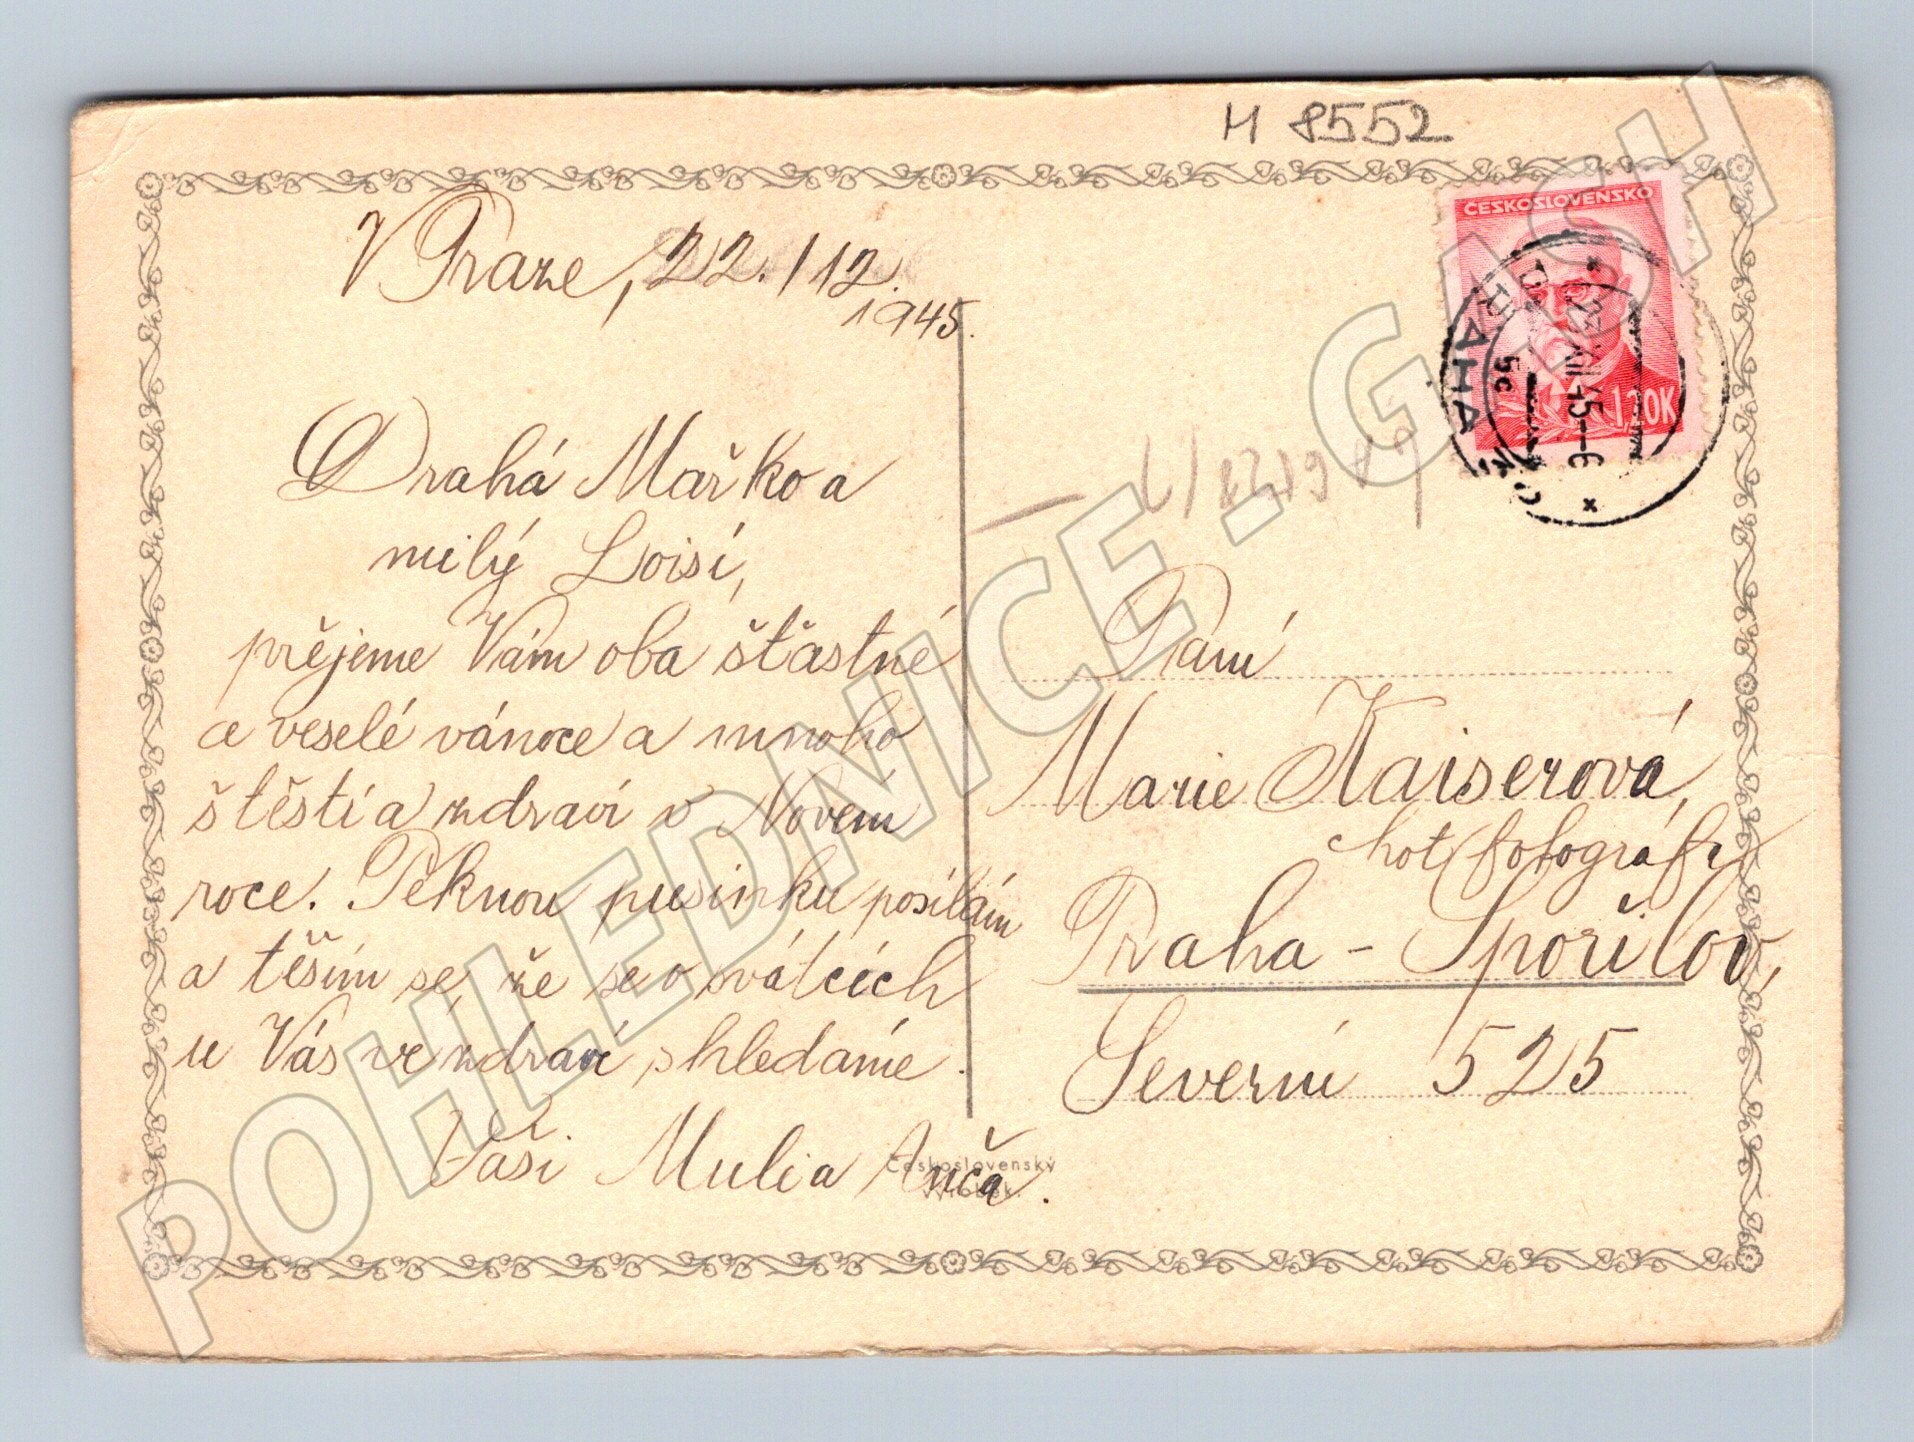 H 8552
V Praze, 22./12.
1945.
Drahá Mařko a
milý Loisi,
přejeme Vám oba šťastné
a veselé vánoce a mnoho
štěstí a zdraví v Novém
roce. Pěknou pusinku posílám
a těším se, že se o svátcích
u Vás ve zdraví shledáme.
Vaši Mulia Anča.
Československý
výrobek.
ČESKOSLOVENSKO
1,20K
PRAHA
23.XII.45--6
5c
Paní
Marie Kaiserová,
choť fotografa
Praha - Spořilov,
Severní 525
POHLEDNICE - GASH